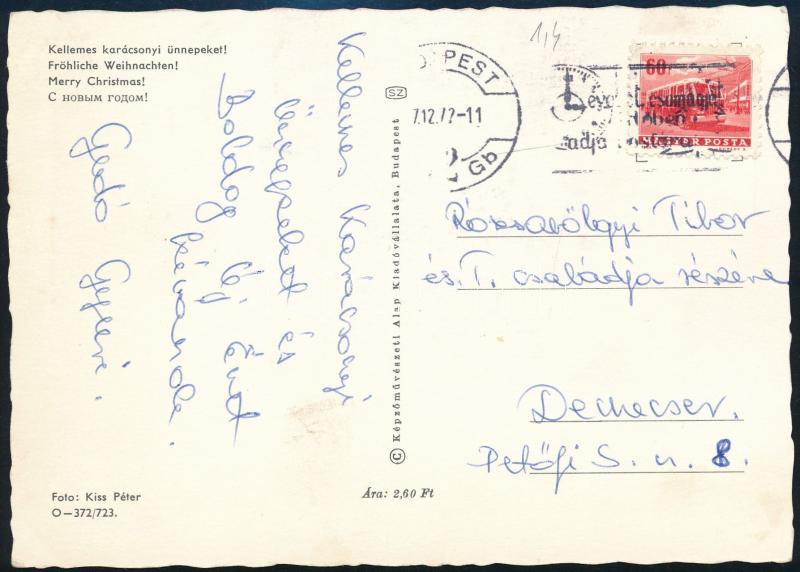 Kellemes karácsonyi ünnepeket!
Fröhliche Weihnachten!
Merry Christmas!
С новым годом!
Kellemes Karácsonyi
Ünnepeket és
Boldog Új Évet
kívánok.
Gedó
Foto: Kiss Péter
O—372/723.
SZ
© Képzőművészeti Alap Kiadóvállalata, Budapest
Ára: 2,60 Ft
1,4
PEST
7.12.72-11
Gb
60f
csomagját
időben
adja postára
MAGYAR POSTA
Rózsavölgyi Tibor
és T. családja részére
Demecser.
Petőfi S. u. 8.